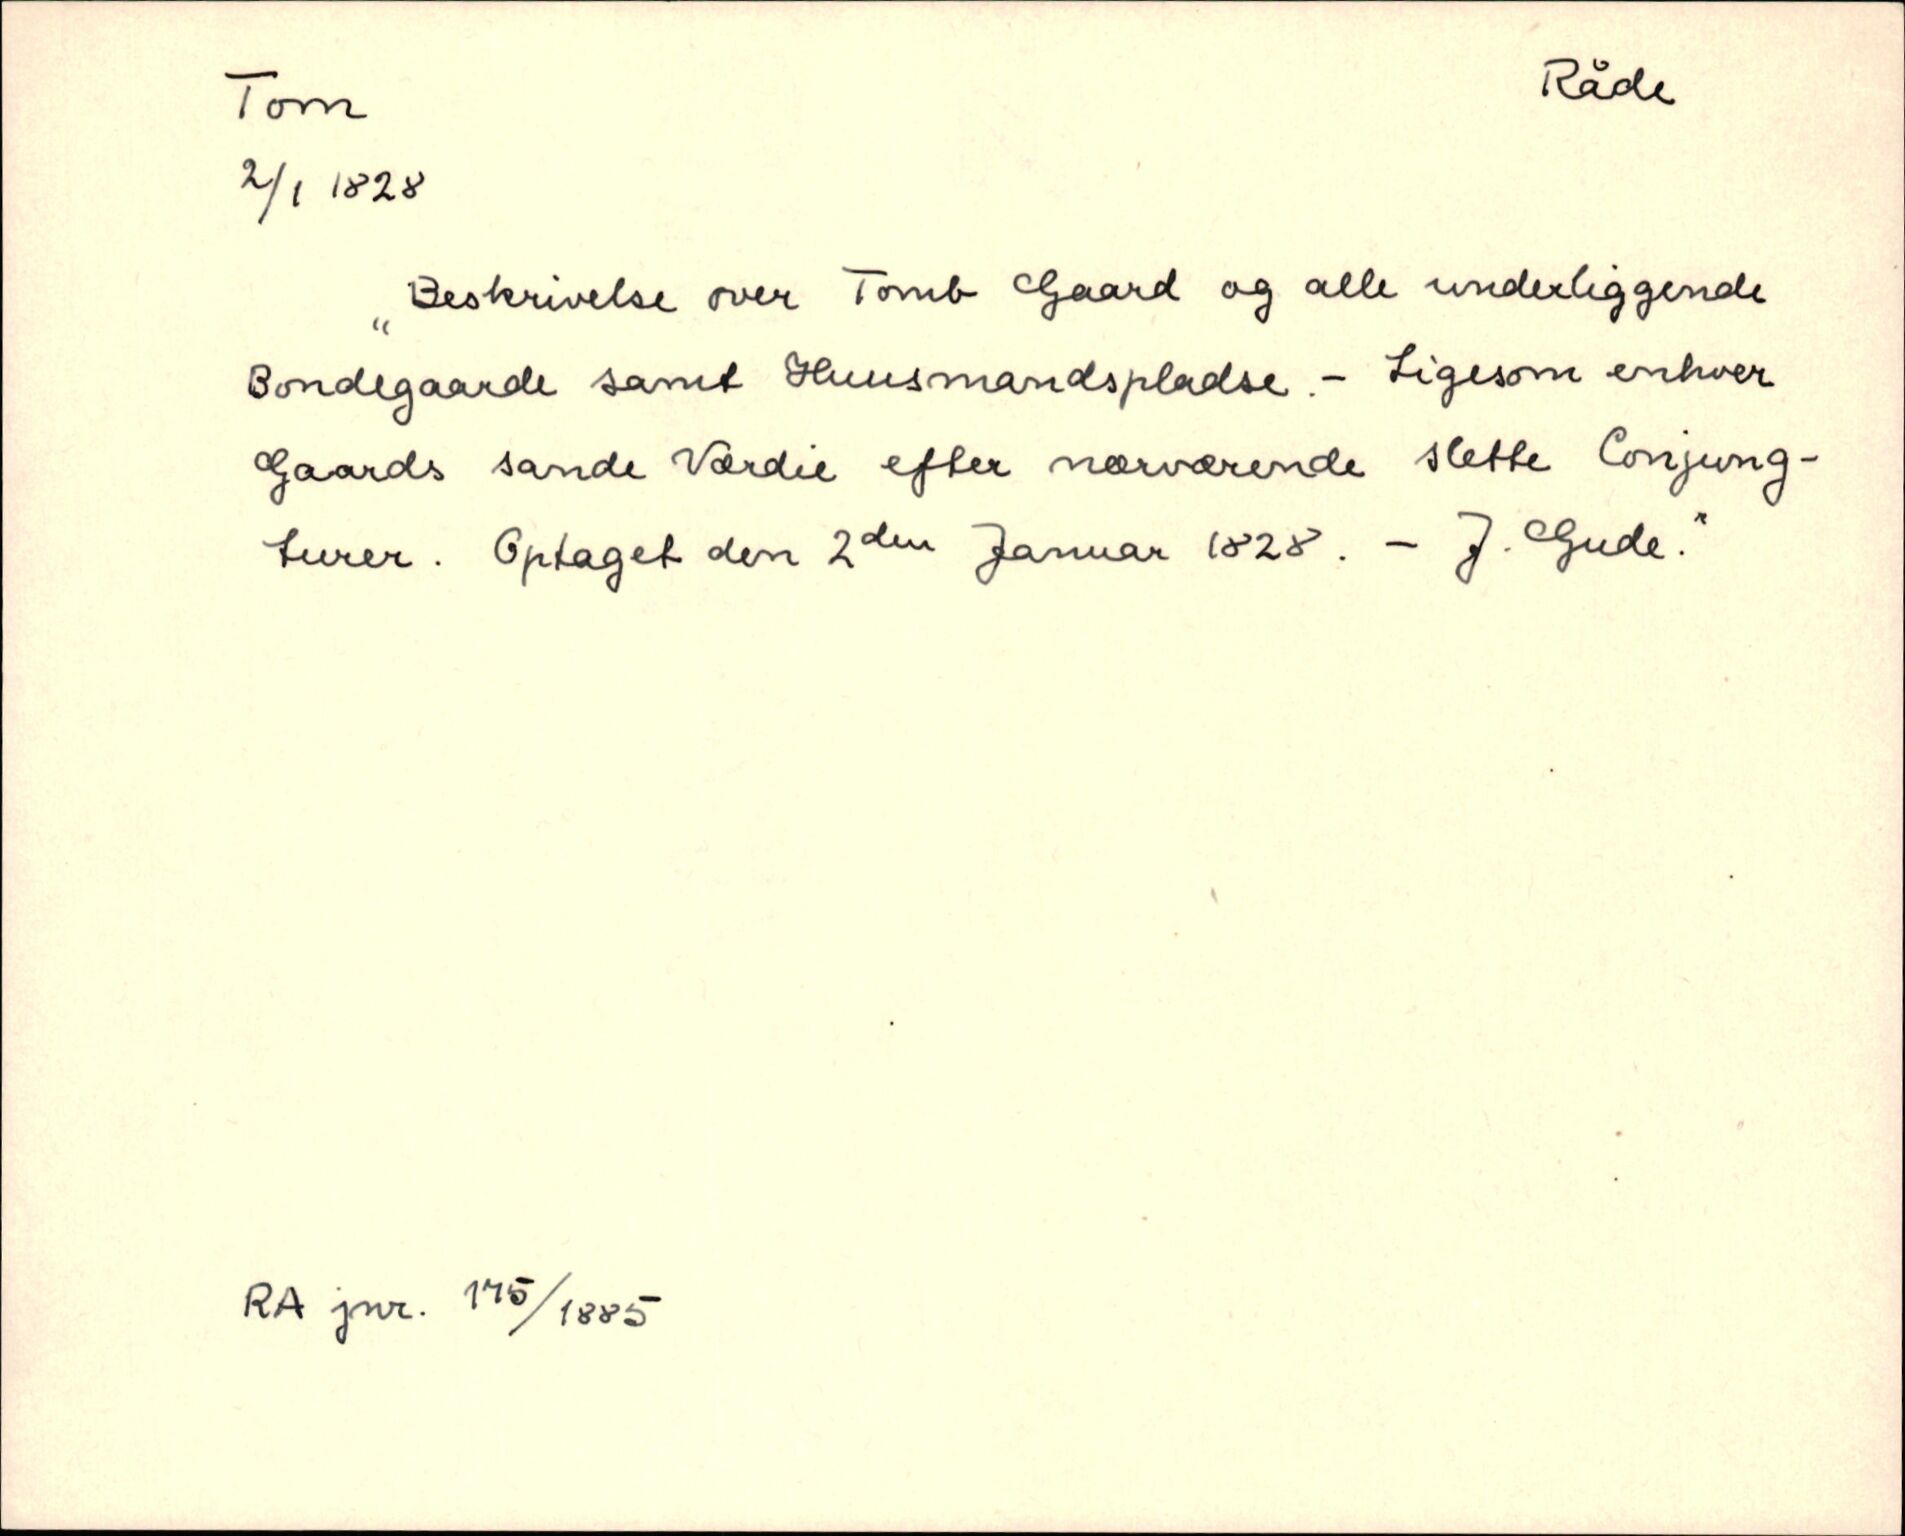 Tom
Råde
2/1 1828
„Beskrivelse over Tomb Gaard og alle underliggende
Bondegaarde samt Huusmandspladse. - Ligesom enhver
Gaards sande Værdie efter nærværende slette Conjung-
turer. Optaget den 2den Januar 1828. - J. Gude."
RA jnr. 175/1885